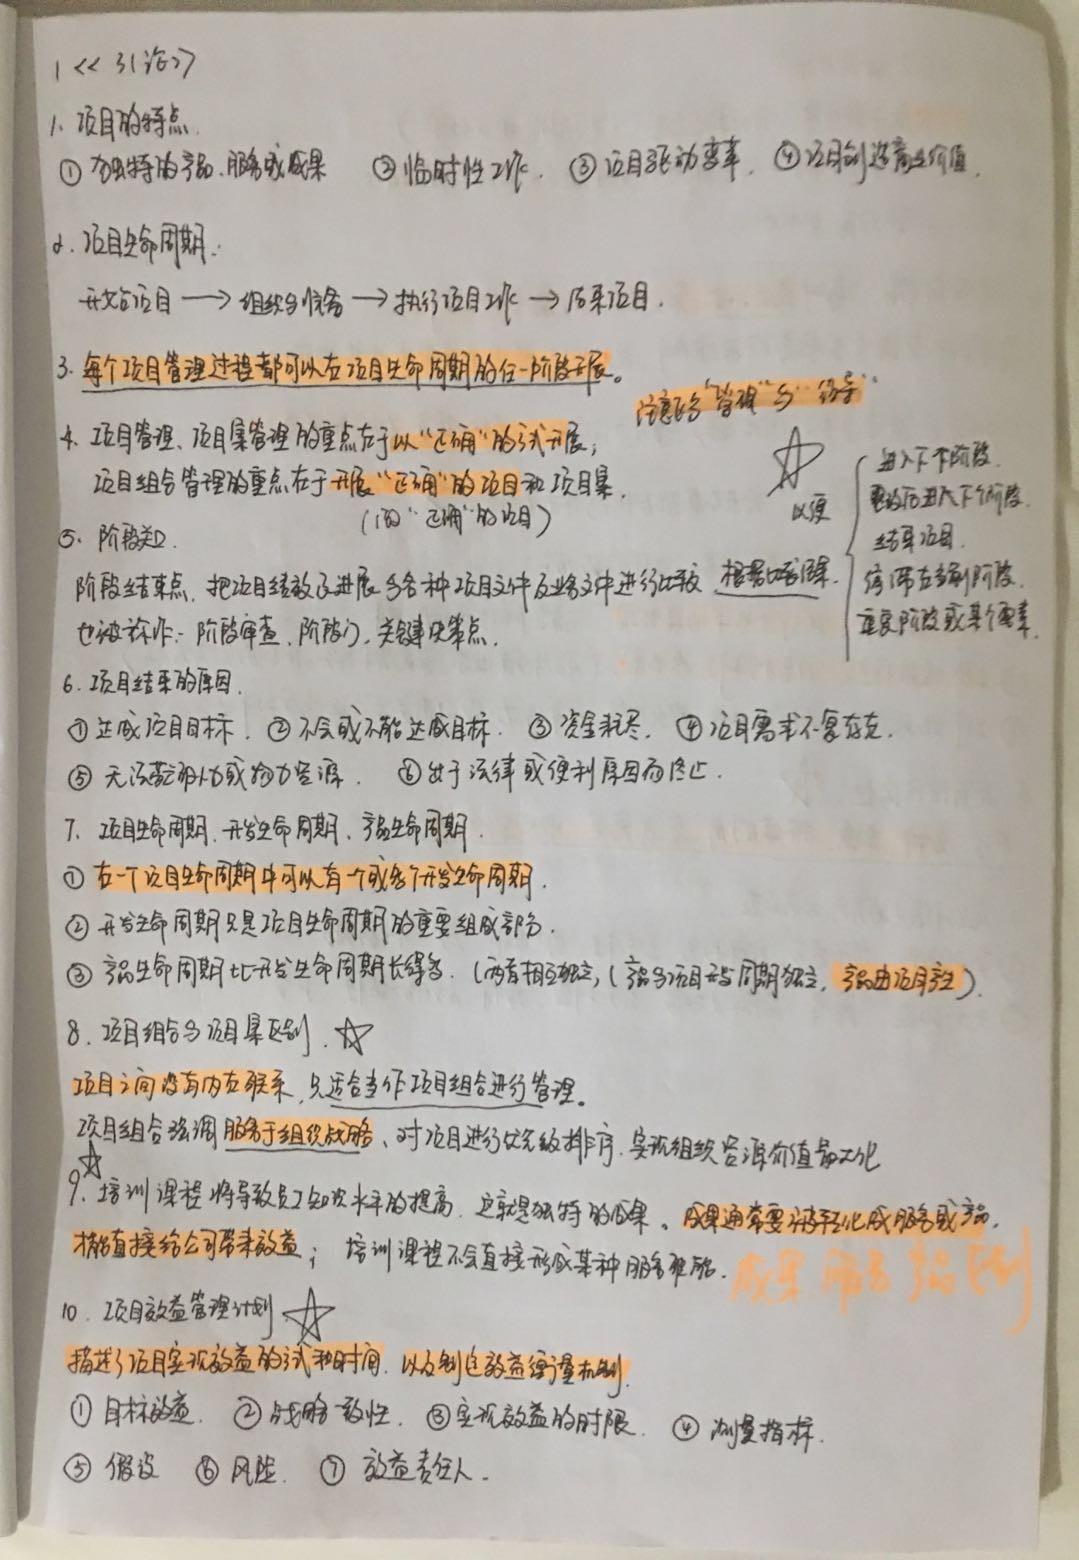 1 <<引论>>
1. 项目的特点.
① 独特的产品、服务或成果 ② 临时性工作. ③ 项目驱动变革. ④ 项目创造商业价值.
2. 项目生命周期:
开始项目 → 组织与准备 → 执行项目工作 → 结束项目.
3. 每个项目管理过程都可以在项目生命周期的任一阶段开展。
注意区分“管理”与“领导”.
4. 项目管理、项目集管理的重点在于以“正确”的方式开展;
项目组合管理的重点在于开展“正确”的项目和项目集.
(“正确”的项目)
5. 阶段关口.
阶段结束点. 把项目绩效及进展与各种项目文件及业务文件进行比较 根据比较结果.
以便
进入下个阶段.
整改后进入下个阶段.
结束项目.
停滞在当前阶段.
重复阶段或某个要素.
也被称作:阶段审查、阶段门、关键决策点.
6. 项目结束的原因.
① 达成项目目标. ② 不会或不能达成目标. ③ 资金耗尽. ④ 项目需求不复存在.
⑤ 无法获取人力或物力资源. ⑥ 出于法律或便利原因而终止.
7. 项目生命周期、开发生命周期、产品生命周期.
① 在一个项目生命周期中可以有一个或多个开发生命周期.
② 开发生命周期只是项目生命周期的重要组成部分.
③ 产品生命周期比开发生命周期长得多. (两者相互独立, (产品与项目开发周期独立, 产品由项目产生).
8. 项目组合与项目集区别.
项目之间没有内在联系, 只适合当作项目组合进行管理。
项目组合强调服务于组织战略、对项目进行优先级排序. 实现组织资源价值最大化
9. 培训课程将导致员工知识水平的提高. 这就是独特的成果。成果通常要被转化成服务或产品,
才能直接给公司带来效益; 培训课程不会直接形成某种服务职能.
成果 服务 产品区别
10. 项目效益管理计划
描述了项目实现效益的方式和时间, 以及制定效益衡量机制.
① 目标效益. ② 战略一致性. ③ 实现效益的时限. ④ 测量指标.
⑤ 假设 ⑥ 风险. ⑦ 效益责任人.